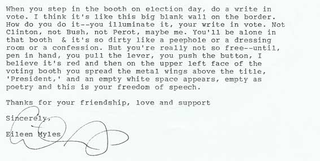 When you step in the booth on election day, do a write in
vote. I think it's like this big blank wall on the border.
How do you do it--you illuminate it, your write in vote. Not
Clinton, not Bush, not Perot, maybe me. You'll be alone in
that booth & it's no dirty like a peephole or a dressing
room or a confession. But you're really not so free--until,
pen in hand, you pull the lever, you push the button, I
believe it's red and then on the upper left face of the
voting booth you spread the metal wings above the title,
'President,' and an empty white space appears, empty as
poetry and this is your freedom of speech.
Thanks for your friendship, love and support
Sincerely,
Eileen Myles